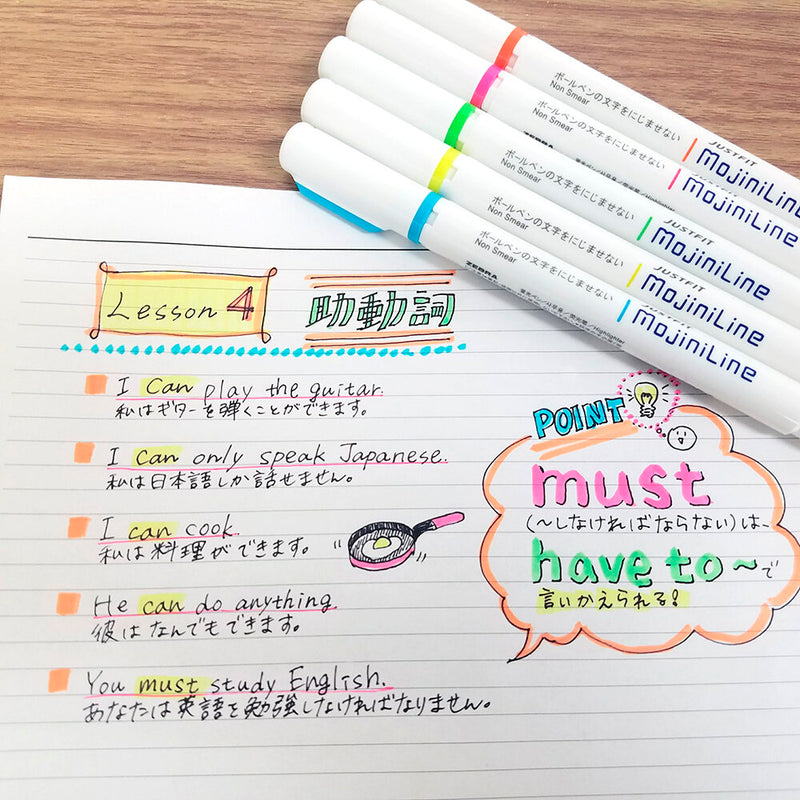 ボールペンの文字をにじませない
Non Smear
JUSTFIT
MojiniLine
ボールペンの文字をにじませない
Non Smear
ZEBRA
JUSTFIT
MojiniLine
ボールペンの文字をにじませない
Non Smear
JUSTFIT
MojiniLine
ボールペンの文字をにじませない
Non Smear
JUSTFIT
MojiniLine
ボールペンの文字をにじませない
Non Smear
ZEBRA
JUSTFIT
MojiniLine
Lesson 4 助動詞
I can play the guitar.
私はギターを弾くことができます。
I can only speak Japanese.
私は日本語しか話せません。
I can cook.
私は料理ができます。
He can do anything.
彼はなんでもできます。
You must study English.
あなたは英語を勉強しなければなりません。
POINT
must
(〜しなければならない)は、
have to 〜で
言いかえられる!